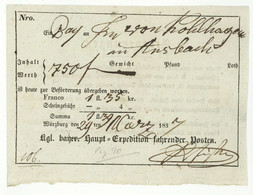 Nro.
Ein Paq an Frn von Holdhagen
in Ansbach
Inhalt Gewicht Pfund Loth
Werth 750 f
ist heute zur Beförderung übergeben worden.
Franco 1 " 35 kr.
Scheingebühr " 4 kr.
Summa 1 " 39 kr.
Würzburg den 29 März 1837
Kgl. bayer. Haupt-Expedition fahrender Posten.